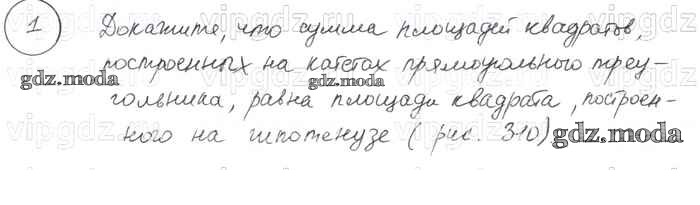 1 Докажите, что сумма площадей квадратов,
построенных на катетах прямоугольного треу-
gdz.moda gdz.moda
гольника, равна площади квадрата, построен-
ного на гипотенузе (рис. 310) gdz.moda